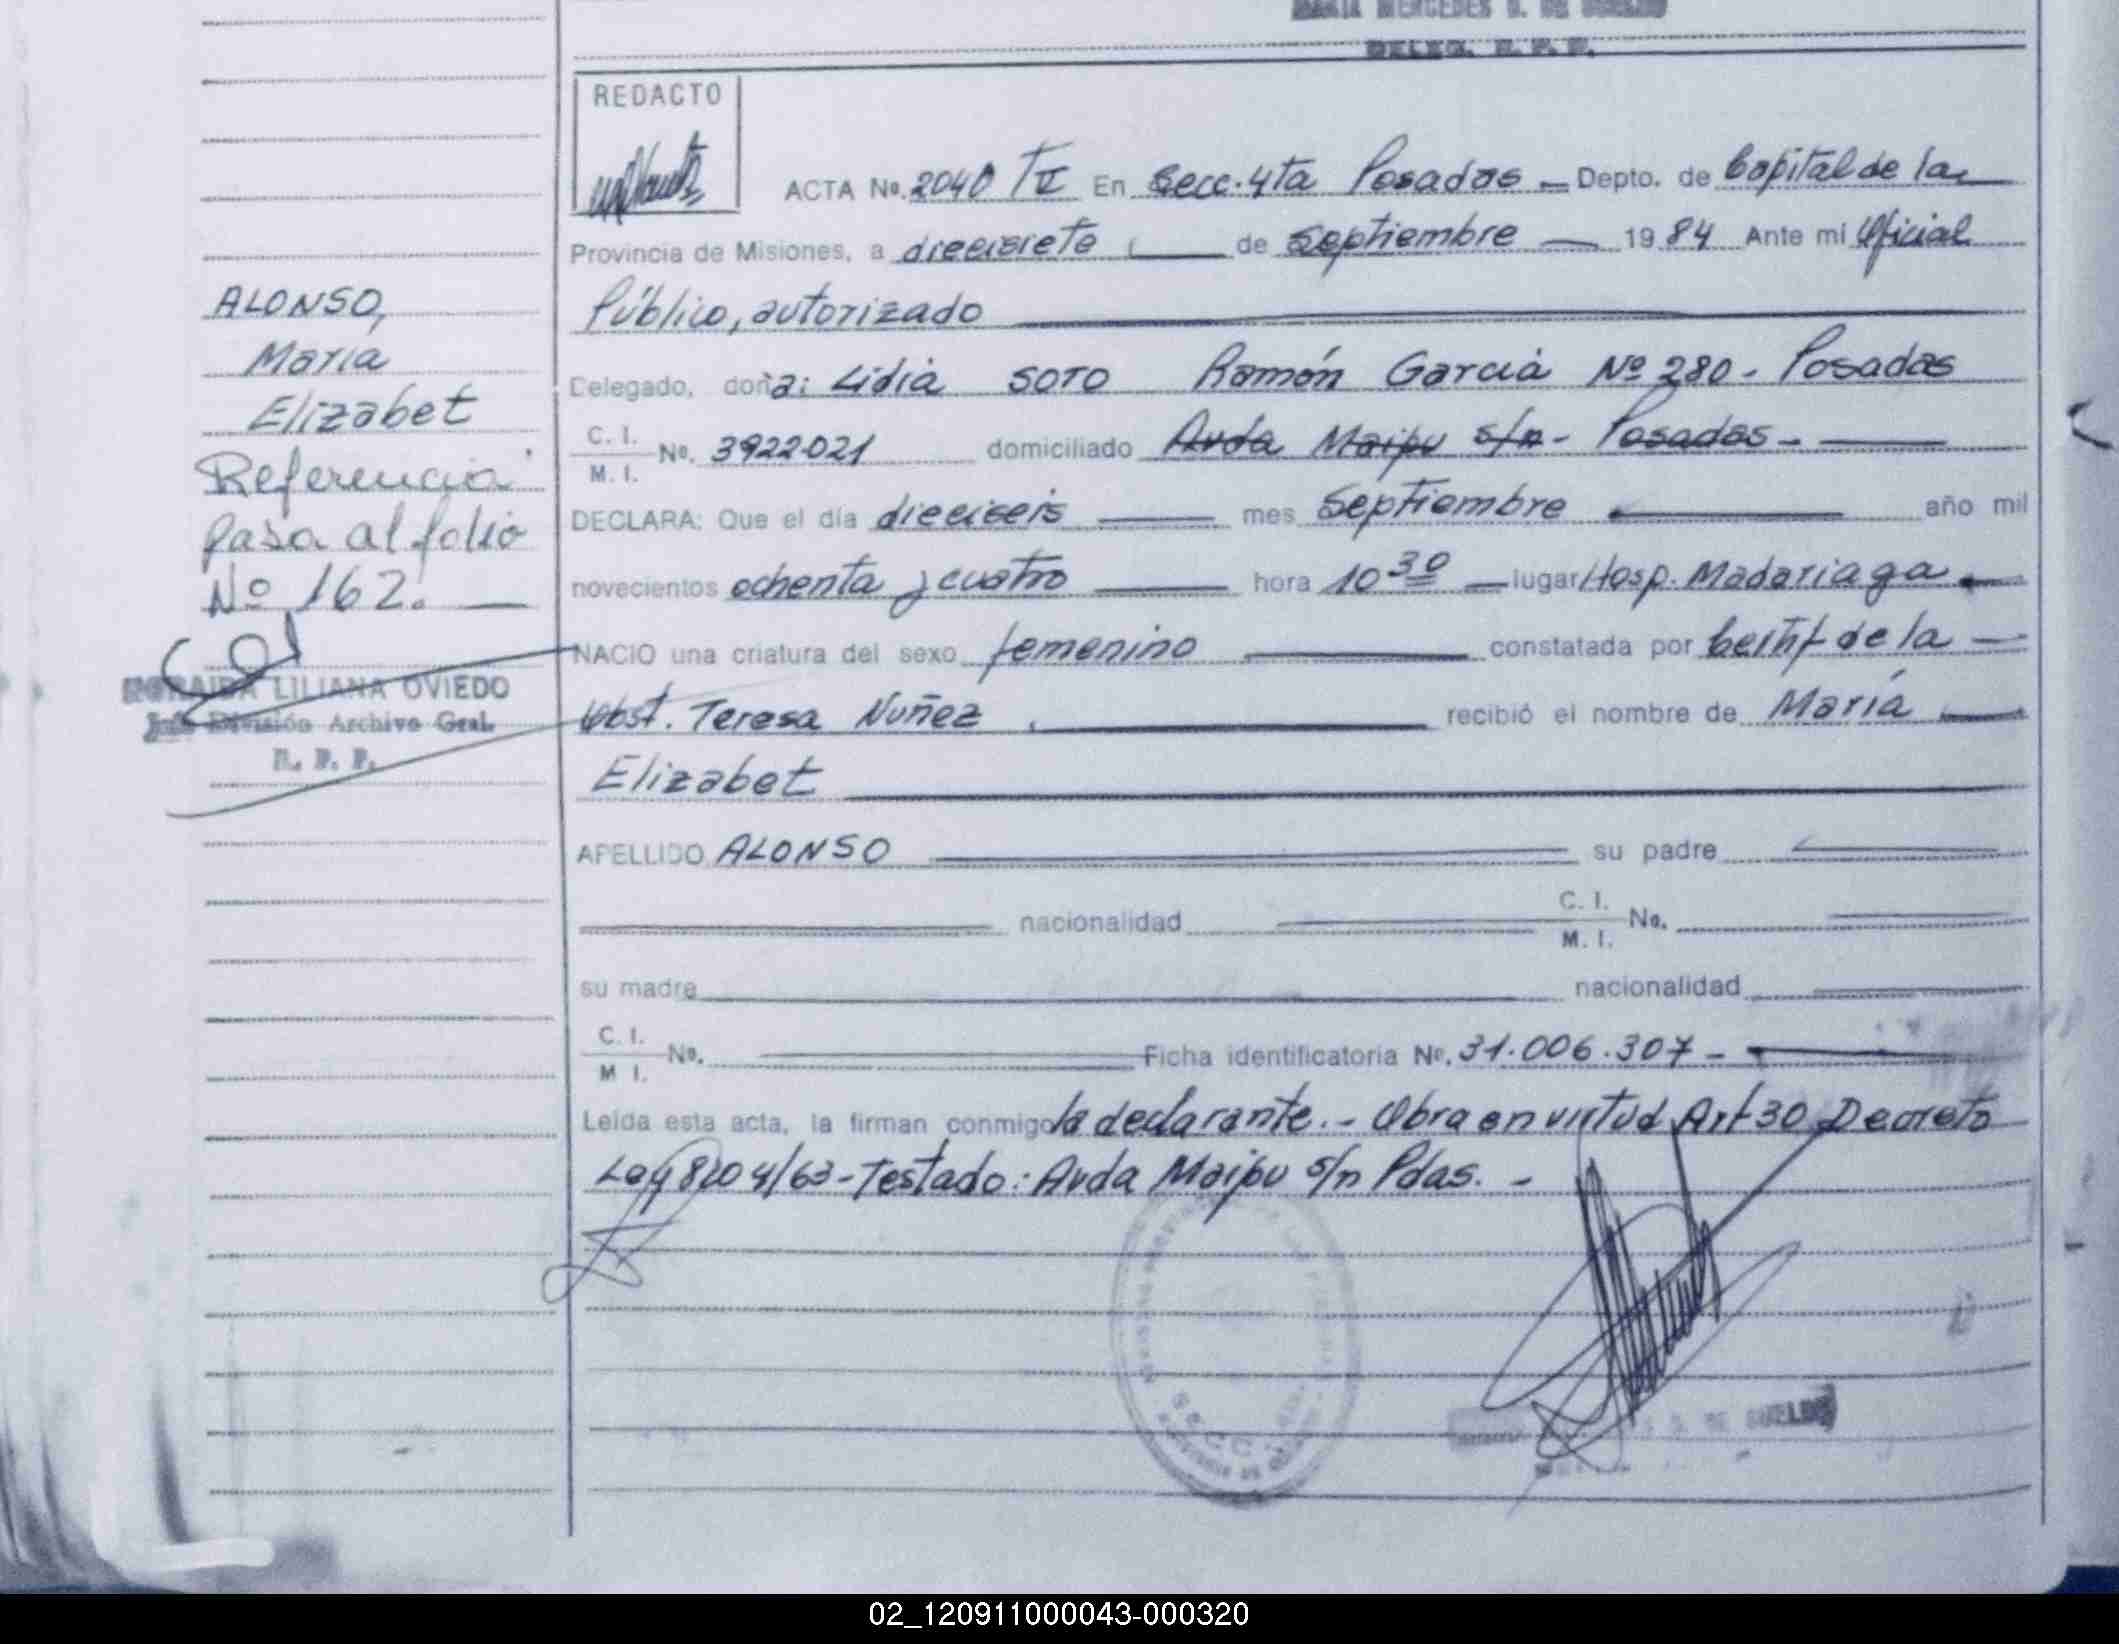 MARIA MERCEDES D. DE SUELDO
DELEG. R. P. P.
REDACTO
ACTA No. 2040 T II En Secc. 4ta Posadas Depto. de Capital de la
Provincia de Misiones, a diecisiete de Septiembre 19 84 Ante mi Oficial
Público, autorizado
Delegado, doña: Lidia SOTO Ramón García Nº 280 - Posadas
C. I.
M. I. No. 3922021 domiciliado Avda Maipu s/n - Posadas -
DECLARA: Que el día dieciseis mes Septiembre año mil
novecientos ochenta y cuatro hora 10 30 lugar Hosp. Madariaga
NACIO una criatura del sexo femenino constatada por Certif de la
Obst. Teresa Nuñez recibió el nombre de María
Elizabet
APELLIDO ALONSO su padre
nacionalidad C. I.
M. I. No.
su madre nacionalidad
C. I.
M I. No. Ficha identificatoria No. 31.006.307 -
Leída esta acta, la firman conmigo la declarante. - Obra en virtud Art 30 Decreto
Ley 8204/63 - Testado: Avda Maipu s/n Pdas. -
DE SUELDO
ALONSO,
María
Elizabet
Referencia
pasa al folio
Nº 162.
LILIANA OVIEDO
Jefe División Archivo Gral.
R. P. P.
02_120911000043-000320